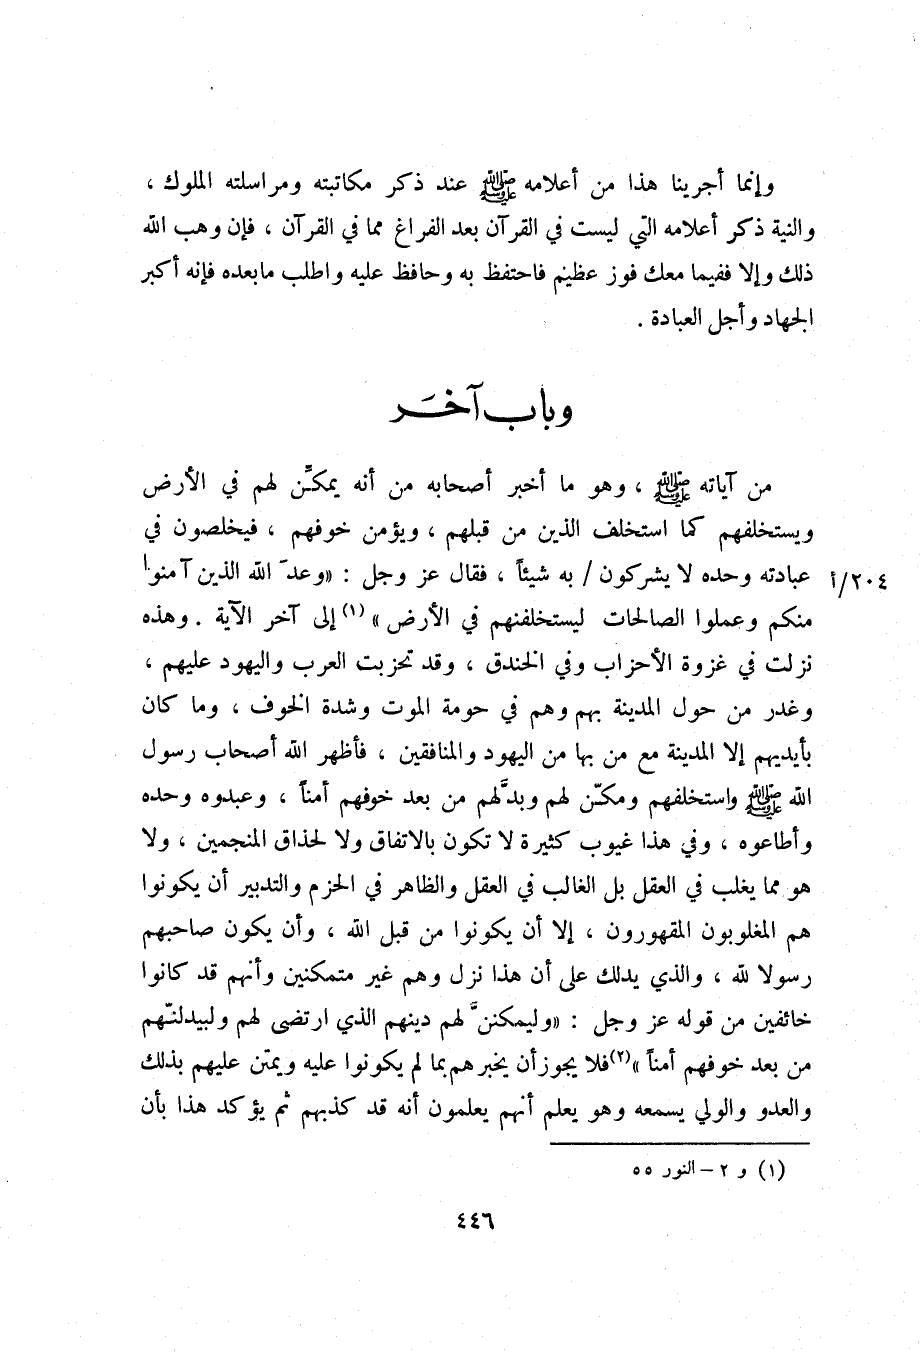 وإنما أجرينا هذا من أعلامه ﷺ عند ذكر مكاتبته ومراسلته الملوك ،
والنية ذكر أعلامه التي ليست في القرآن بعد الفراغ مما في القرآن ، فإن وهب الله
ذلك وإلا ففيما معك فوز عظيم فاحتفظ به وحافظ عليه واطلب مابعده فإنه أكبر
الجهاد وأجل العبادة .
وباب آخَر
من آياته ﷺ ، وهو ما أخبر أصحابه من أنه يمكّن لهم في الأرض
ويستخلفهم كما استخلف الذين من قبلهم ، ويؤمن خوفهم ، فيخلصون في
عبادته وحده لا يشركون / به شيئاً ، فقال عز وجل : «وعدَ الله الذين آمنوا ٢٠٤/أ
منكم وعملوا الصالحات ليستخلفنهم في الأرض» (١) إلى آخر الآية . وهذه
نزلت في غزوة الأحزاب وفي الخندق ، وقد تحزبت العرب واليهود عليهم ،
وغدر من حول المدينة بهم وهم في حومة الموت وشدة الخوف ، وما كان
بأيديهم إلا المدينة مع من بها من اليهود والمنافقين ، فأظهر الله أصحاب رسول
الله ﷺ واستخلفهم ومكّن لهم وبدَّلهم من بعد خوفهم أمناً ، وعبدوه وحده
وأطاعوه ، وفي هذا غيوب كثيرة لا تكون بالاتفاق ولا لحذاق المنجمين ، ولا
هو مما يغلب في العقل بل الغالب في العقل والظاهر في الحزم والتدبير أن يكونوا
هم المغلوبون المقهورون ، إلا أن يكونوا من قبل الله ، وأن يكون صاحبهم
رسولا لله ، والذي يدلك على أن هذا نزل وهم غير متمكنين وأنهم قد كانوا
خائفين من قوله عز وجل : «وليمكننَّ لهم دينهم الذي ارتضى لهم ولبيدلنّهم
من بعد خوفهم أمناً »(٢)فلا يجوزأن يخبرهم بما لم يكونوا عليه ويمتن عليهم بذلك
والعدو والولي يسمعه وهو يعلم أنهم يعلمون أنه قد كذبهم ثم يؤكد هذا بأن
(١) و ٢ - النور ٥٥
٤٤٦